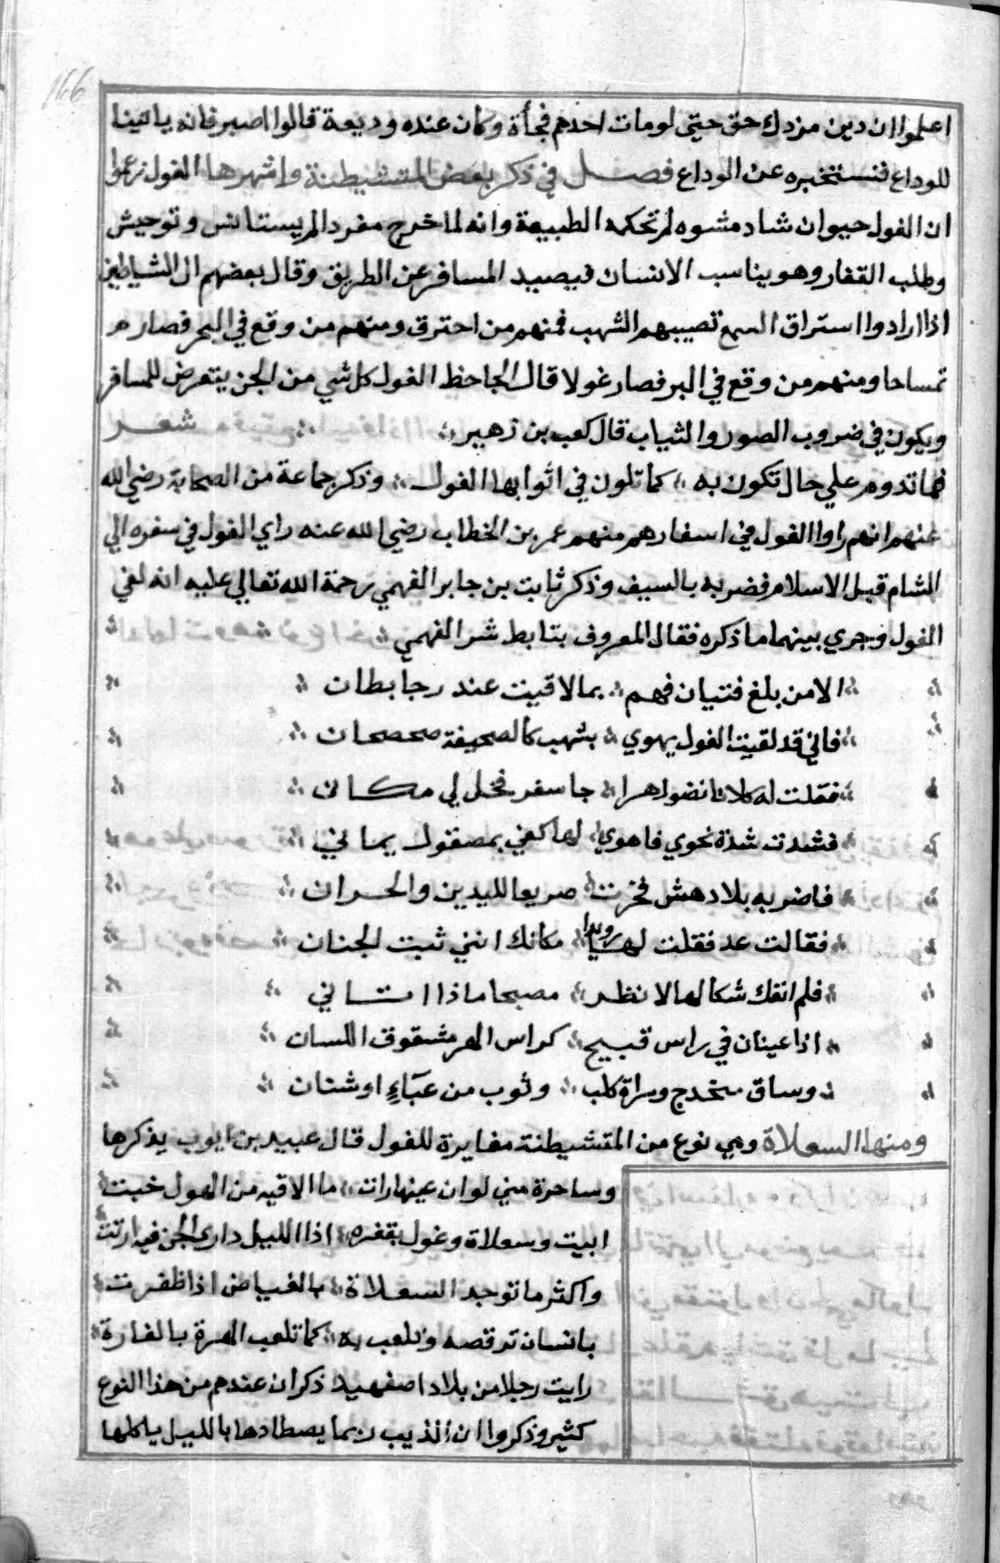 166
اعلموا ان دين مزدك حق حتي لو مات احدهم فجأة وكان عنده وديعة قالوا اصبر فانه ياتينا
للوداع فنستخبره عن الوداع فصل في ذكر بعض المتشيطنة واشهرها الغول زعموا
ان الغول حيوان شاد مشوه لم تحكمه الطبيعة وانه لما خرج مفردا لم يستانس وتوحيش
وطلب القفار وهو يناسب الانسان فيصيد المسافر عن الطريق وقال بعضهم ان الشياطين
اذا ارادوا استراق السمع تصيبهم الشهب فمنهم من احترق ومنهم من وقع في البحر فصار
تمساحا ومنهم من وقع في البر فصار غولا قال الجاحظ الغول كل شي من الجن يتعرض للمسافر
ويكون في ضروب الصور والثياب قال كعب بن زهير شعر
فما تدوم علي حال تكون به كما تلون في اثوابها الغول وذكر جماعة من الصحابة رضي الله
عنهم انهم راوا الغول في اسفارهم منهم عمر بن الخطاب رضي الله عنه راي الغول في سفره الي
الشام قبل الاسلام فضربه بالسيف وذكر ثابت بن جابر الفهمي رحمة الله تعالي عليه انه لقي
الغول وجري بينهما ما ذكره فقال المعروف بتابط شر الفهمي
الا من بلغ فتيان فهم بما لاقيت عند رجا بطان
فاني قد لقيت الغول يهوي بشهب كالصحيفة صحصحان
فقلت له كلانا نضو جا سفر فخل لي مكاني
فشدت شدة نحوي فاهوي لها كفي بمصقول يماني
فاضربه بلا دهش فخرت صريعا لليدين والجران
فقالت عد فقلت لها رويدا مكانك انني ثبت الجنان
فلم انفك لها لانظر مصبحا ماذا اتاني
اذا عينان في راس قبيح كراس الهر مشقوق اللسان
وساق مخدج وسراة كلب وثوب من عباء او شنان
ومنها السعلاة وهي نوع من المتشيطنة مغايرة للغول قال عبيد بن ايوب يذكرها
وساحرة مني لو ان عينها رات ما الاقيه من الهول خبت
ابيت وسعلاة وغول بقفره اذا الليل داري الجن فيه ارنت
واكثر ما توجد السعلاة بالغياض اذا ظفرت
بانسان ترقصه وتلعب به كما تلعب الهرة بالفارة
رايت رجلا من بلاد اصفهيد ذكر ان عندهم من هذا النوع
كثير وذكروا ان الذيب ربما يصطادها بالليل ياكلها